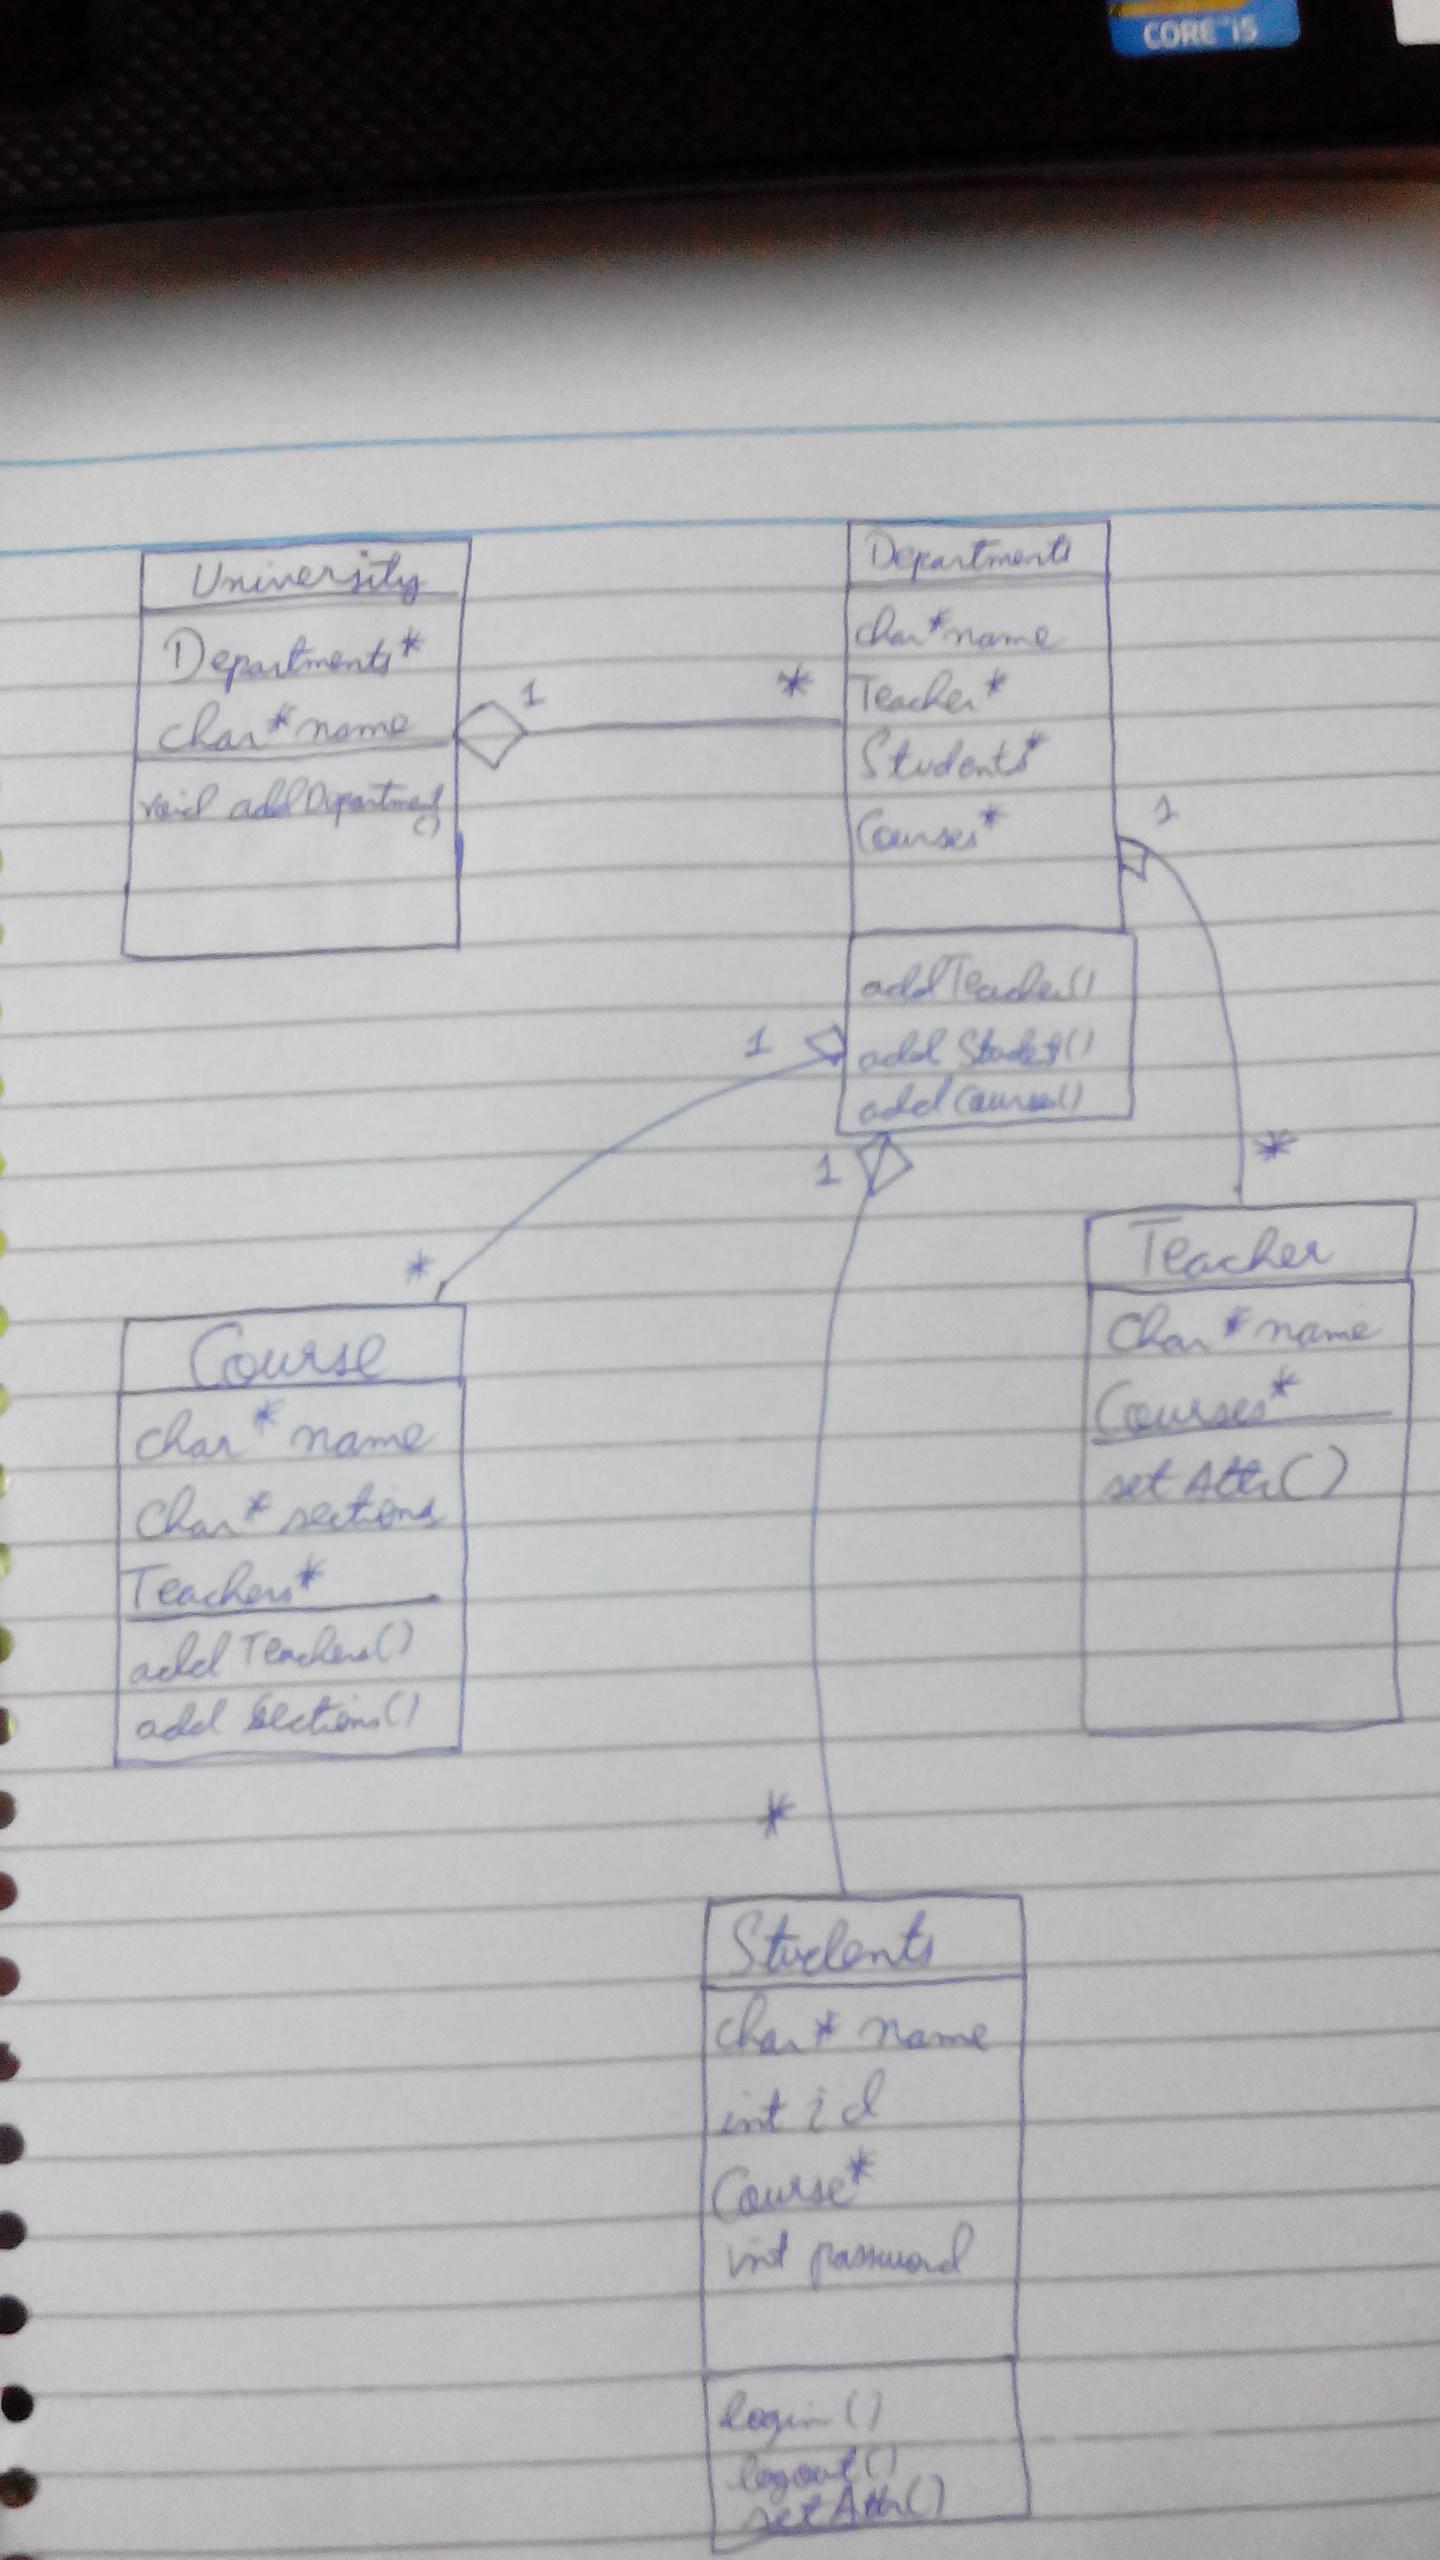 CORE i5
University
Departments*
char* name
void addDepartment
()
1
*
Departments
char* name
Teacher*
Students*
Courses*
addTeacher()
add Student()
add course()
1
*
1
*
1
*
Course
char* name
char* sections
Teachers*
add Teachers()
add Sections()
Teacher
char* name
Courses*
set Attr()
Students
char* name
int id
Course*
int password
login()
logout()
set Attr()